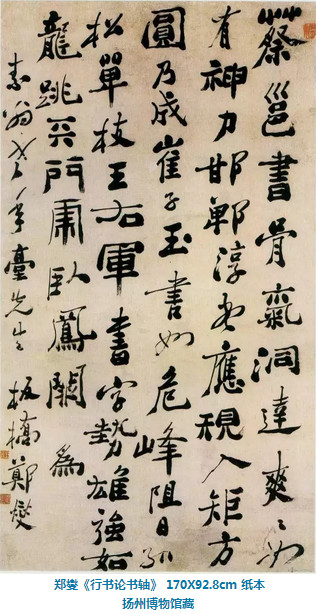 蔡邕書骨氣洞達爽〻如
有神力邯鄲淳書應規入矩方
圓乃成崔子玉書如危峰阻日孤
松單枝王右軍書字勢雄強如
龍跳天門虎臥鳳闕為
素翁老年臺先生 板橋鄭燮
郑燮《行书论书轴》 170X92.8cm 纸本
扬州博物馆藏